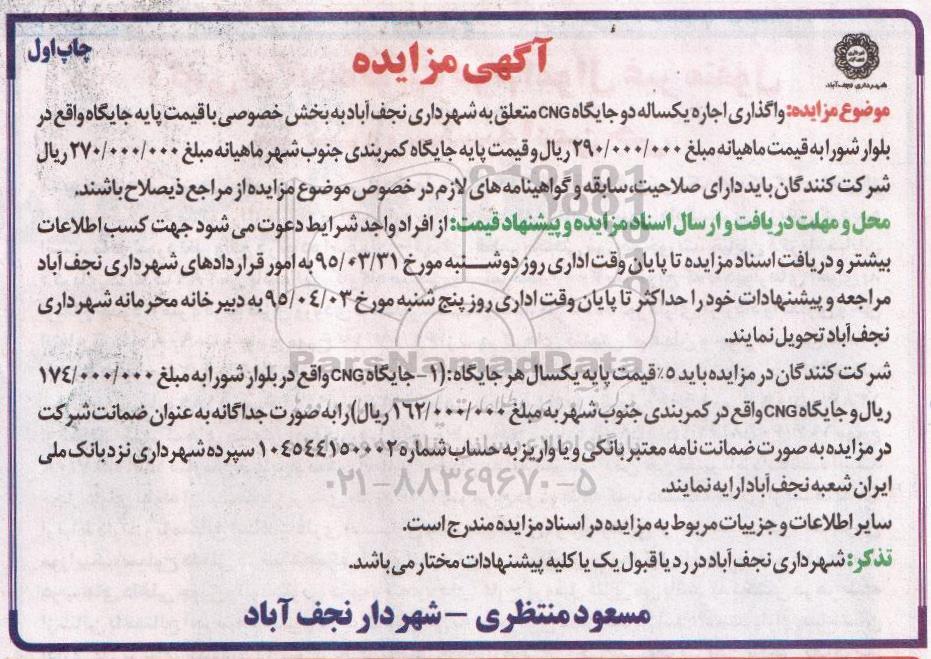 آگهی مزایده
چاپ اول
شهرداری نجف‌آباد
موضوع مزایده: واگذاری اجاره یکساله دو جایگاه CNG متعلق به شهرداری نجف آباد به بخش خصوصی با قیمت پایه جایگاه واقع در
بلوار شورا به قیمت ماهیانه مبلغ ۲۹۰/۰۰۰/۰۰۰ ریال و قیمت پایه جایگاه کمربندی جنوب شهر ماهیانه مبلغ ۲۷۰/۰۰۰/۰۰۰ ریال
شرکت کنندگان باید دارای صلاحیت، سابقه و گواهینامه های لازم در خصوص موضوع مزایده از مراجع ذیصلاح باشند.
محل و مهلت دریافت و ارسال اسناد مزایده و پیشنهاد قیمت: از افراد واجد شرایط دعوت می شود جهت کسب اطلاعات
بیشتر و دریافت اسناد مزایده تا پایان وقت اداری روز دوشنبه مورخ ۹۵/۰۳/۳۱ به امور قراردادهای شهرداری نجف آباد
مراجعه و پیشنهادات خود را حداکثر تا پایان وقت اداری روز پنج شنبه مورخ ۹۵/۰۴/۰۳ به دبیرخانه محرمانه شهرداری
نجف آباد تحویل نمایند.
ParsNamadData
شرکت کنندگان در مزایده باید ۵٪ قیمت پایه یکسال هر جایگاه: (۱- جایگاه CNG واقع در بلوار شورا به مبلغ ۱۷۴/۰۰۰/۰۰۰
ریال و جایگاه CNG واقع در کمربندی جنوب شهر به مبلغ ۱۶۲/۰۰۰/۰۰۰ ریال) را به صورت جداگانه به عنوان ضمانت شرکت
در مزایده به صورت ضمانت نامه معتبر بانکی و یا واریز به حساب شماره ۱۰۴۵۴۴۱۵۰۰۰۲ سپرده شهرداری نزد بانک ملی
ایران شعبه نجف آباد ارایه نمایند.
۰۲۱-۸۸۳۴۹۶۷۰-۵
سایر اطلاعات و جزییات مربوط به مزایده در اسناد مزایده مندرج است.
تذکر: شهرداری نجف آباد در رد یا قبول یک یا کلیه پیشنهادات مختار می باشد.
مسعود منتظری - شهردار نجف آباد